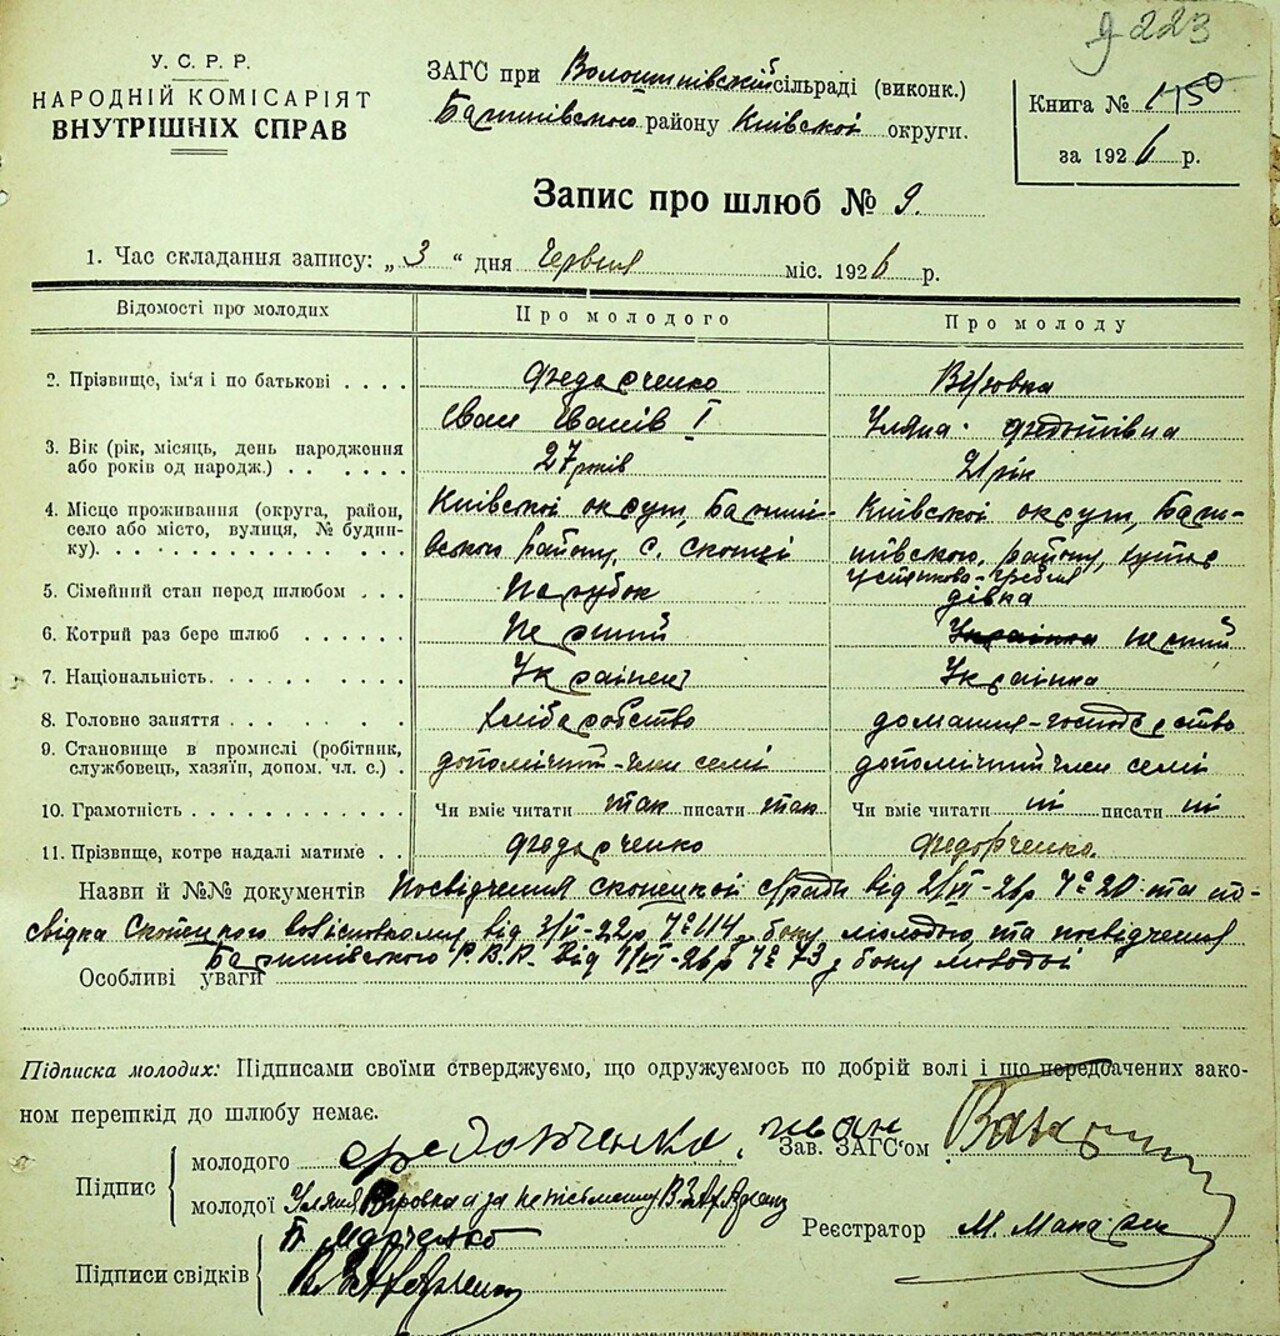 223
У. С. Р. Р.
НАРОДНІЙ КОМІСАРІЯТ
ВНУТРІШНІХ СПРАВ
ЗАГС при Волошинівській сільраді (виконк.)
Баришівського району Київської округи.
Книга № 1150
за 1926 р.
Запис про шлюб № 9.
1. Час складання запису: „ 3 “ дня Червня міс. 1926 р.
Відомості про молодих
Про молодого
Про молоду
2. Прізвище, ім'я і по батькові . . . .
Федорченко
Іван Іванів І
Вировка
Уляна Федотівна
3. Вік (рік, місяць, день народження
або років од народж.) . . . . . .
27 років
21 рік
4. Місце проживання (округа, район,
село або місто, вулиця, № будин-
ку).
Київської округи, Бариші-
вського району, с. Скопці
Київської округи, Бари-
шівського, району, хутір
дівка
5. Сімейний стан перед шлюбом . . .
Парубок
6. Котрий раз бере шлюб . . . . . .
Перший
Українка перший
7. Національність.
Українец
Українка
8. Головне заняття
Хліборобство
домашнє-господарство
9. Становище в промислі (робітник,
службовець, хазяїн, допом. чл. с.) .
допомічний-член семї
допомічний член семї
10. Грамотність
Чи вміє читати так писати так
Чи вміє читати ні писати ні
11. Прізвище, котре надалі матиме . .
Федорченко
Федорченко.
Назви й №№ документів Посвідчення Скопецкої с/ради від 2/VI-26р № 20 та по-
свідка Скопецкого від 22р № 114 з боку молодого, та посвідчення
Баришівського Р.В.К. від 1/VI-26р № 73 з боку молодої
Особливі уваги
Підписка молодих: Підписами своїми стверджуємо, що одружуємось по добрій волі і що передбачених зако-
ном перешкід до шлюбу немає.
Підпис
молодого Федорченко, иван
молодої Уляна Вировка а за неписьменну
Зав. ЗАГС'ом
Реєстратор М. Мака
Підписи свідків
Марченко